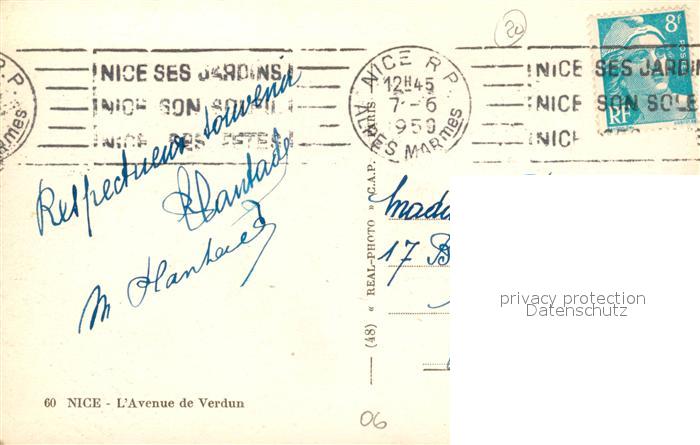 20
8f
RF
NICE R.P.
12H45
7-6
1950
ALPES MARmes
R.P.
NICE SES JARDINS
NICE SON SOLEIL
NICE SES FETES
NICE SES JARDIN
NICE SON SOLE
NICE
Respectueux souvenir
M
Mada
17 B
(48) « REAL-PHOTO » C.A.P. PARIS
privacy protection
Datenschutz
60 NICE - L'Avenue de Verdun
06